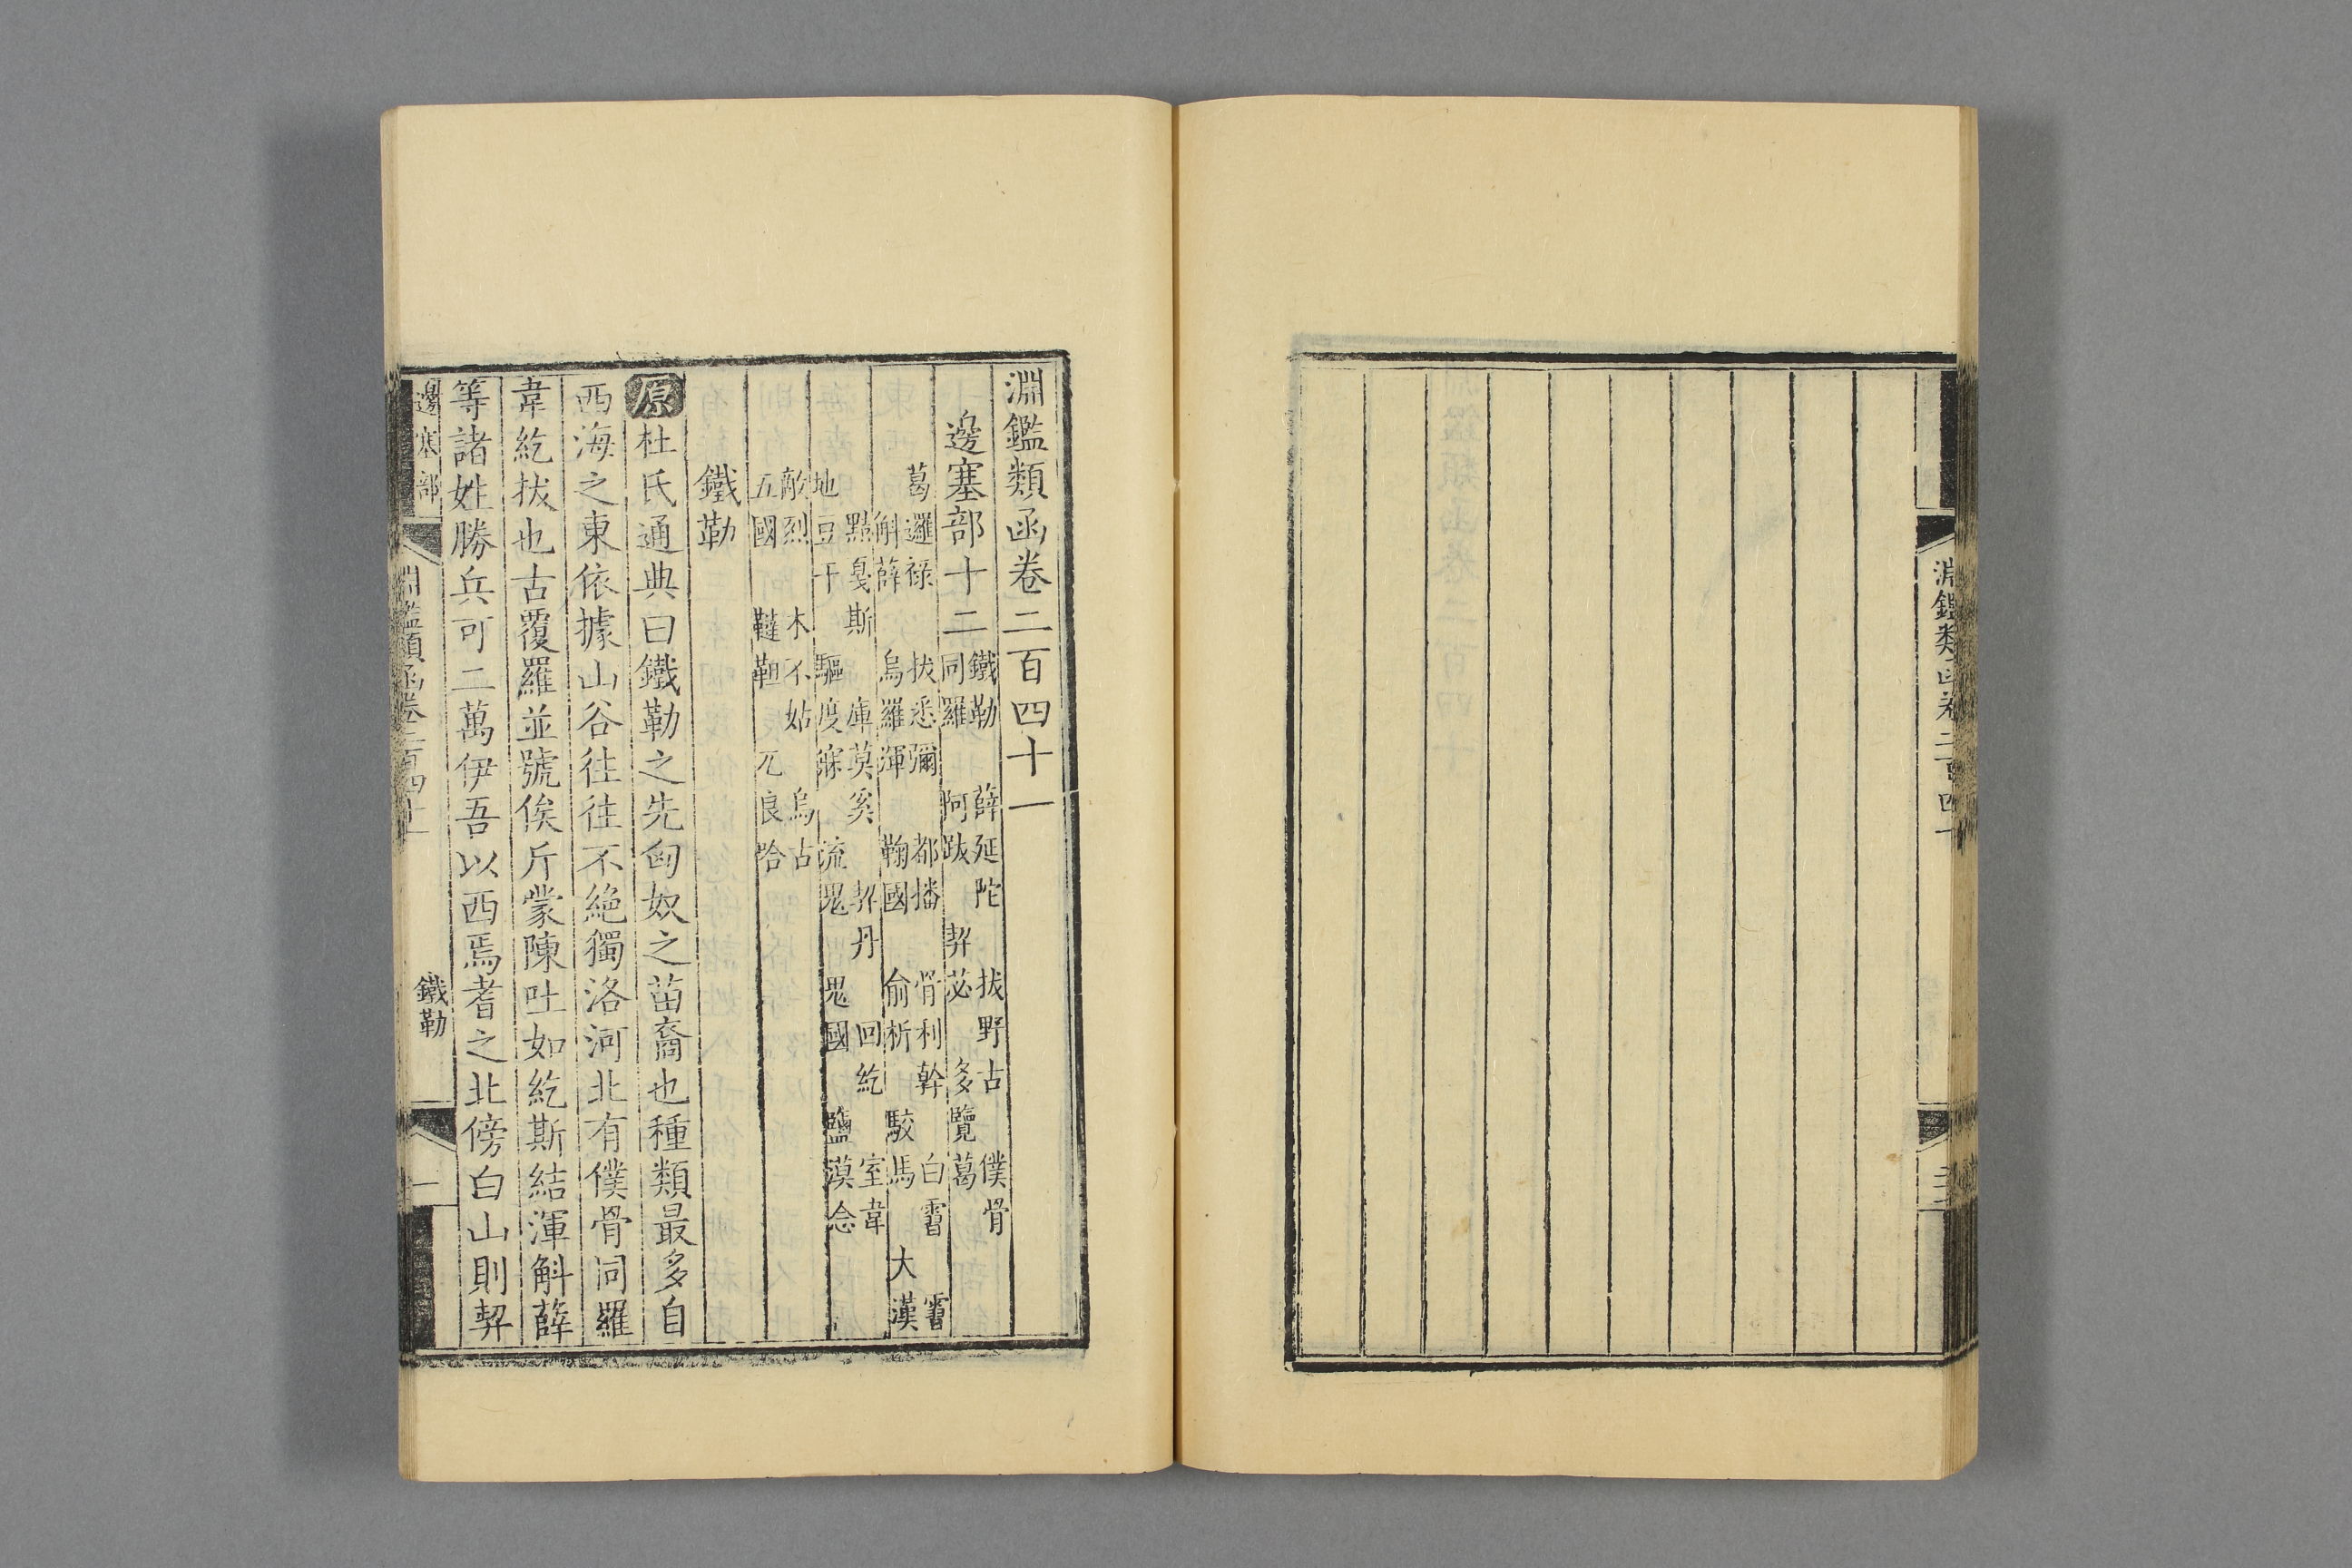 淵鑑類函卷二百四十
淵鑑類函卷二百四十一
邊塞部十二
鐵勒 薛延陀 拔野古 僕骨
同羅 阿跌 契苾 多覽葛
葛邏祿 拔悉彌 都播 骨利幹 白霫 霫
斛薛 烏羅渾 鞠國 俞析 駮馬 大漢
黠戛斯 庫莫奚 契丹 回紇 室韋
地豆干 驅度寐 流鬼 鬼國 鹽漠念
敵烈 木不姑 烏古
五國 韃靼 兀良哈
鐵勒
原杜氏通典曰鐵勒之先匈奴之苗裔也種類最多自
西海之東依據山谷往往不絶獨洛河北有僕骨同羅
韋紇拔也古覆羅並號俟斤蒙陳吐如紇斯結渾斛薛
等諸姓勝兵可二萬伊吾以西焉耆之北傍白山則契
邊塞部 淵鑑類函卷二百四十一 鐵勒 一